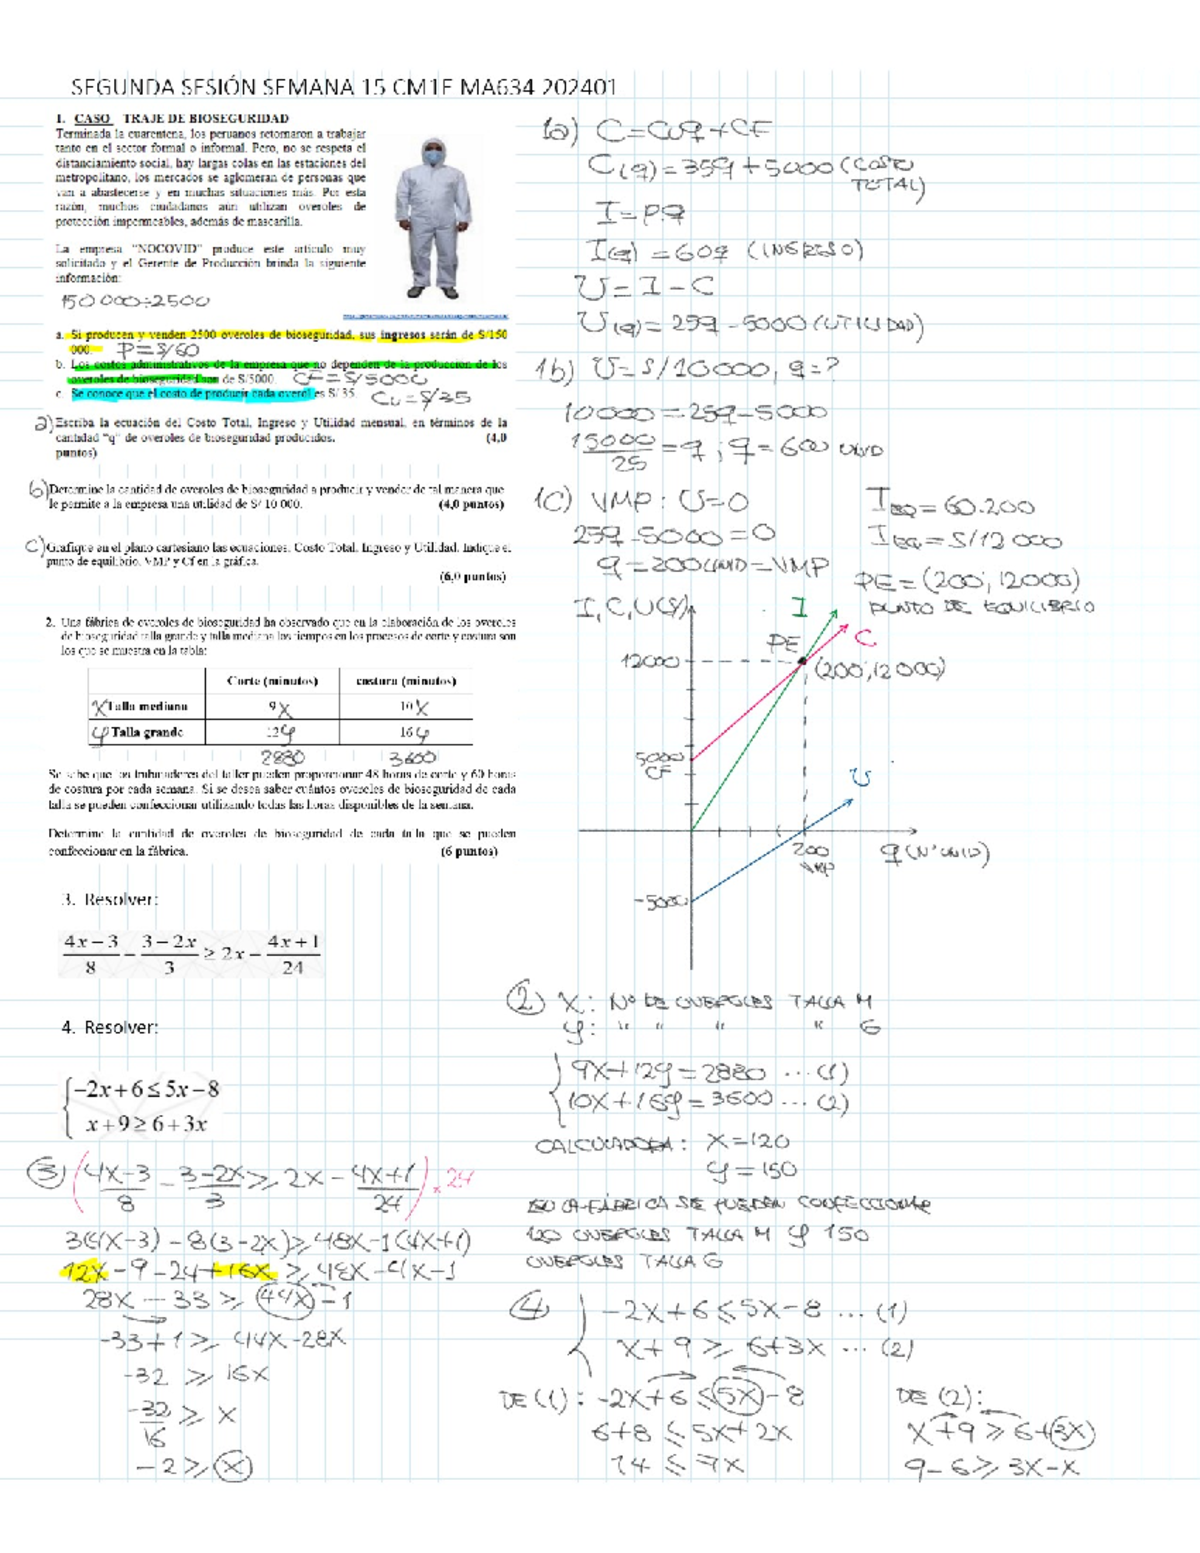 SEGUNDA SESIÓN SEMANA 15 CM1F MA634 202401
1. CASO TRAJE DE BIOSEGURIDAD
Terminada la cuarentena, los peruanos retomaron a trabajar
tanto en el sector formal o informal. Pero, no se respeta el
distanciamiento social, hay largas colas en las estaciones del
metropolitano, los mercados se aglomeran de personas que
van a abastecerse y en muchas situaciones más. Por esta
razón, muchos ciudadanos aún utilizan overoles de
protección impermeables, además de mascarilla.
La empresa "NOCOVID" produce este artículo muy
solicitado y el Gerente de Producción brinda la siguiente
información:
150 000÷2500
a. Si producen y venden 2500 overoles de bioseguridad, sus ingresos serán de S/150
000. P=S/60
b. Los costos administrativos de la empresa que no dependen de la producción de los
overoles de bioseguridad son de S/5000. CF=S/5000
c. Se conoce que el costo de producir cada overol es S/ 35. Cu=S/35
a) Escriba la ecuación del Costo Total, Ingreso y Utilidad mensual, en términos de la
cantidad "q" de overoles de bioseguridad producidos. (4,0
puntos)
b) Determine la cantidad de overoles de bioseguridad a producir y vender de tal manera que
le permite a la empresa una utilidad de S/ 10 000. (4,0 puntos)
c) Grafique en el plano cartesiano las ecuaciones: Costo Total, Ingreso y Utilidad. Indique el
punto de equilibrio, VMP y Cf en la gráfica.
(6,0 puntos)
2. Una fábrica de overoles de bioseguridad ha observado que en la elaboración de los overoles
de bioseguridad talla grande y talla mediana los tiempos en los procesos de corte y costura son
los que se muestra en la tabla:
Corte (minutos) costura (minutos)
x Talla mediana 9x 10x
y Talla grande 12y 16y
2880 3600
Se sabe que los trabajadores del taller pueden proporcionar 48 horas de corte y 60 horas
de costura por cada semana. Si se desea saber cuántos overoles de bioseguridad de cada
talla se pueden confeccionar utilizando todas las horas disponibles de la semana.
Determine la cantidad de overoles de bioseguridad de cada talla que se pueden
confeccionar en la fábrica. (6 puntos)
3. Resolver:
(4x−3)/8 − (3−2x)/3 ≥ 2x − (4x+1)/24
4. Resolver:
{ −2x+6 ≤ 5x−8
x+9 ≥ 6+3x
③ ( (4x−3)/8 − (3−2x)/3 ≥ 2x − (4x+1)/24 ) × 24
3(4x−3) − 8(3−2x) ≥ 48x − 1(4x+1)
12x − 9 − 24 + 16x ≥ 48x − 4x − 1
28x − 33 ≥ 44x − 1
−33+1 ≥ 44x−28x
−32 ≥ 16x
−32/16 ≥ x
−2 ≥ x
1a) C=Cuq+CF
C(q)=35q+5000 (COSTO
TOTAL)
I=Pq
I(q)=60q (INGRESO)
U=I−C
U(q)=25q−5000 (UTILIDAD)
1b) U=S/10000, q=?
10000=25q−5000
15000/25=q ; q=600 UNID
1C) VMP: U=0
25q−5000=0
q=200 UNID=VMP
I EQ=60.200
I EQ=S/12 000
PE=(200; 12000)
PUNTO DE EQUILIBRIO
I, C, U(S/)
I
C
PE
12000
(200; 12000)
5000
CF
U
200
VMP
q (N° UNID)
−5000
② x: N° DE OVEROLES TALLA M
y: " " " " G
{ 9x+12y=2880 ... (1)
10x+16y=3600 ... (2)
CALCULADORA: x=120
y=150
EN LA FÁBRICA SE PUEDEN CONFECCIONAR
120 OVEROLES TALLA M y 150
OVEROLES TALLA G
④ { −2x+6≤5x−8 ... (1)
x+9≥6+3x ... (2)
DE (1): −2x+6≤5x−8
6+8≤5x+2x
14≤7x
DE (2):
x+9≥6+3x
9−6≥3x−x